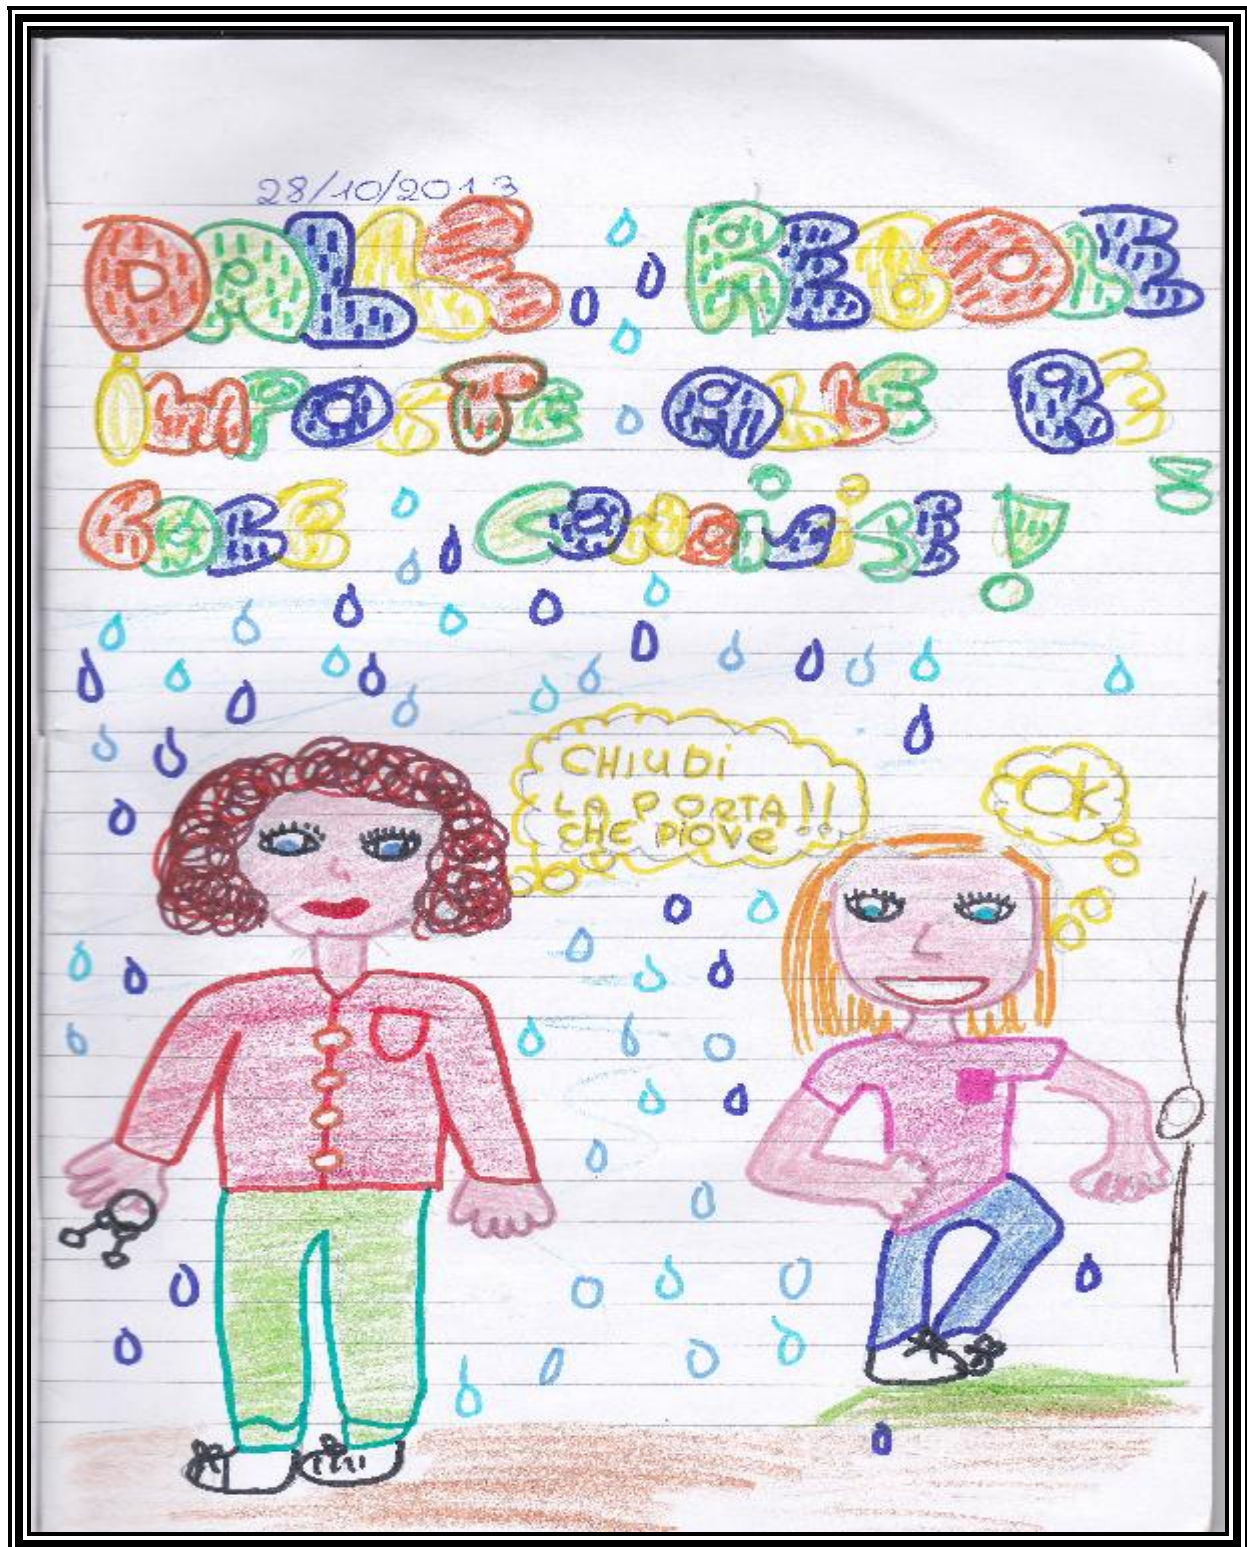 28/10/2013
DALLE REGOLE
iMPOSTE ALLE RE
GOLE CONDiViSE !
CHIUDi
LA PORTA
CHE PiOVE !!
OK